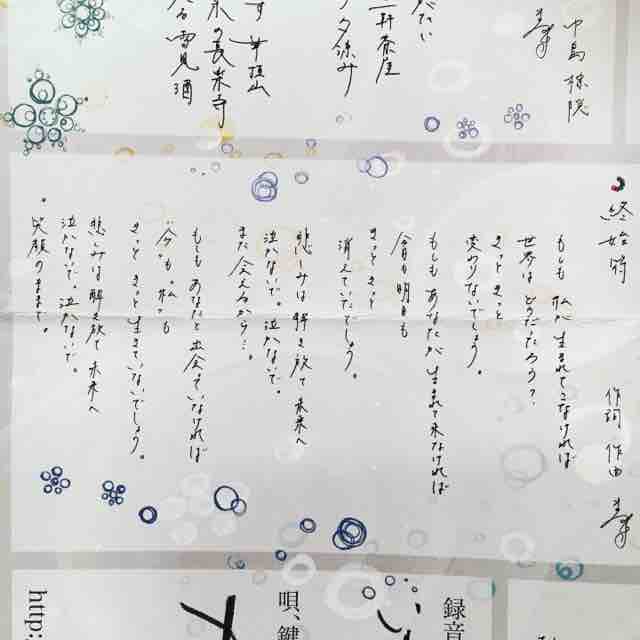 中島
井
夕涼み
の長楽寺
雪見酒
終始符
作詞 作曲
もしも 私が 生まれてこなければ
世界は どうだたろう?
きっと きっと
変わりないでしょう。
もしも あなたが 生まれて来なければ
今日も 明日も
きっと きっと
消えていたでしょう。
悲しみは 解き放て 未来へ
泣かないで。泣かないで。
また会えるから…。
もしも あなたと 出会ていなければ
"今"も。"私"も
きっと きっと 生きていないでしょう。
悲しみは 解き放て 未来へ
泣かないで。泣かないで。
笑顔のままで。
録音
唄、鍵
http: